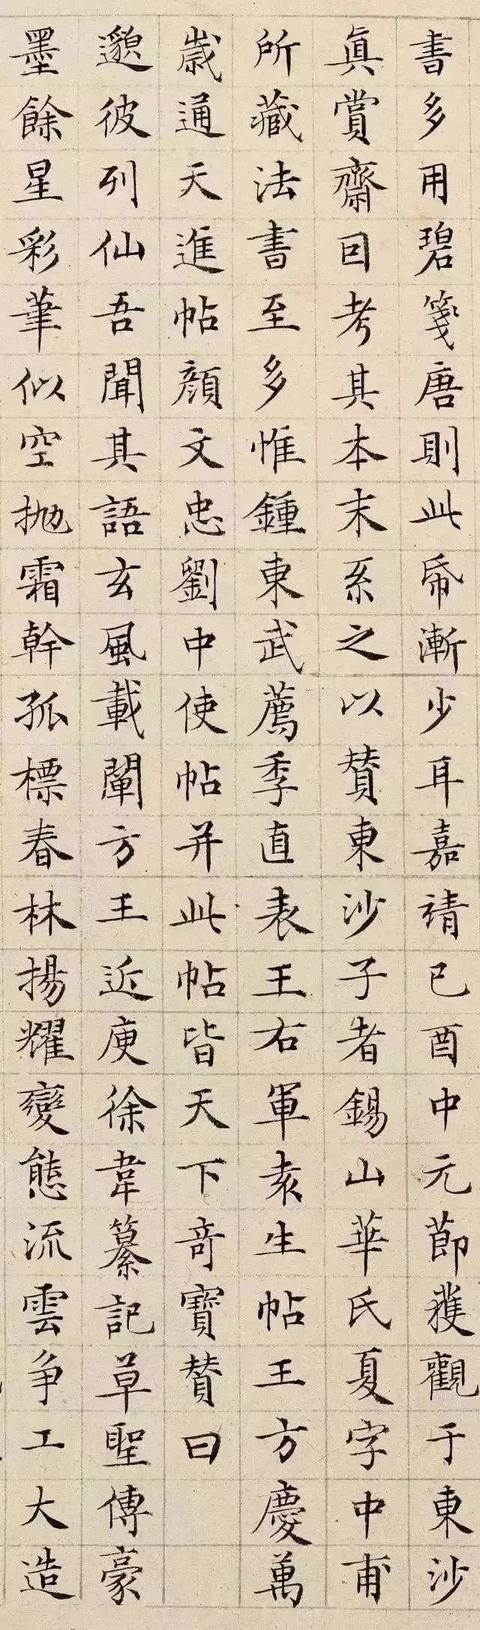 書多用碧箋唐則此帋漸少耳嘉靖已酉中元節獲觀于東沙
眞賞齋囙考其本末系之以賛東沙子者錫山華氏夏字中甫
所藏法書至多惟鍾東武薦季直表王右軍袁生帖王方慶萬
歲通天進帖顏文忠劉中使帖并此帖皆天下奇寶賛曰
邈彼列仙吾聞其語玄風載闡方王近庾徐韋纂記草聖傳豪
墨餘星彩筆似空拋霜幹孤標春林揚耀變態流雲争工大造